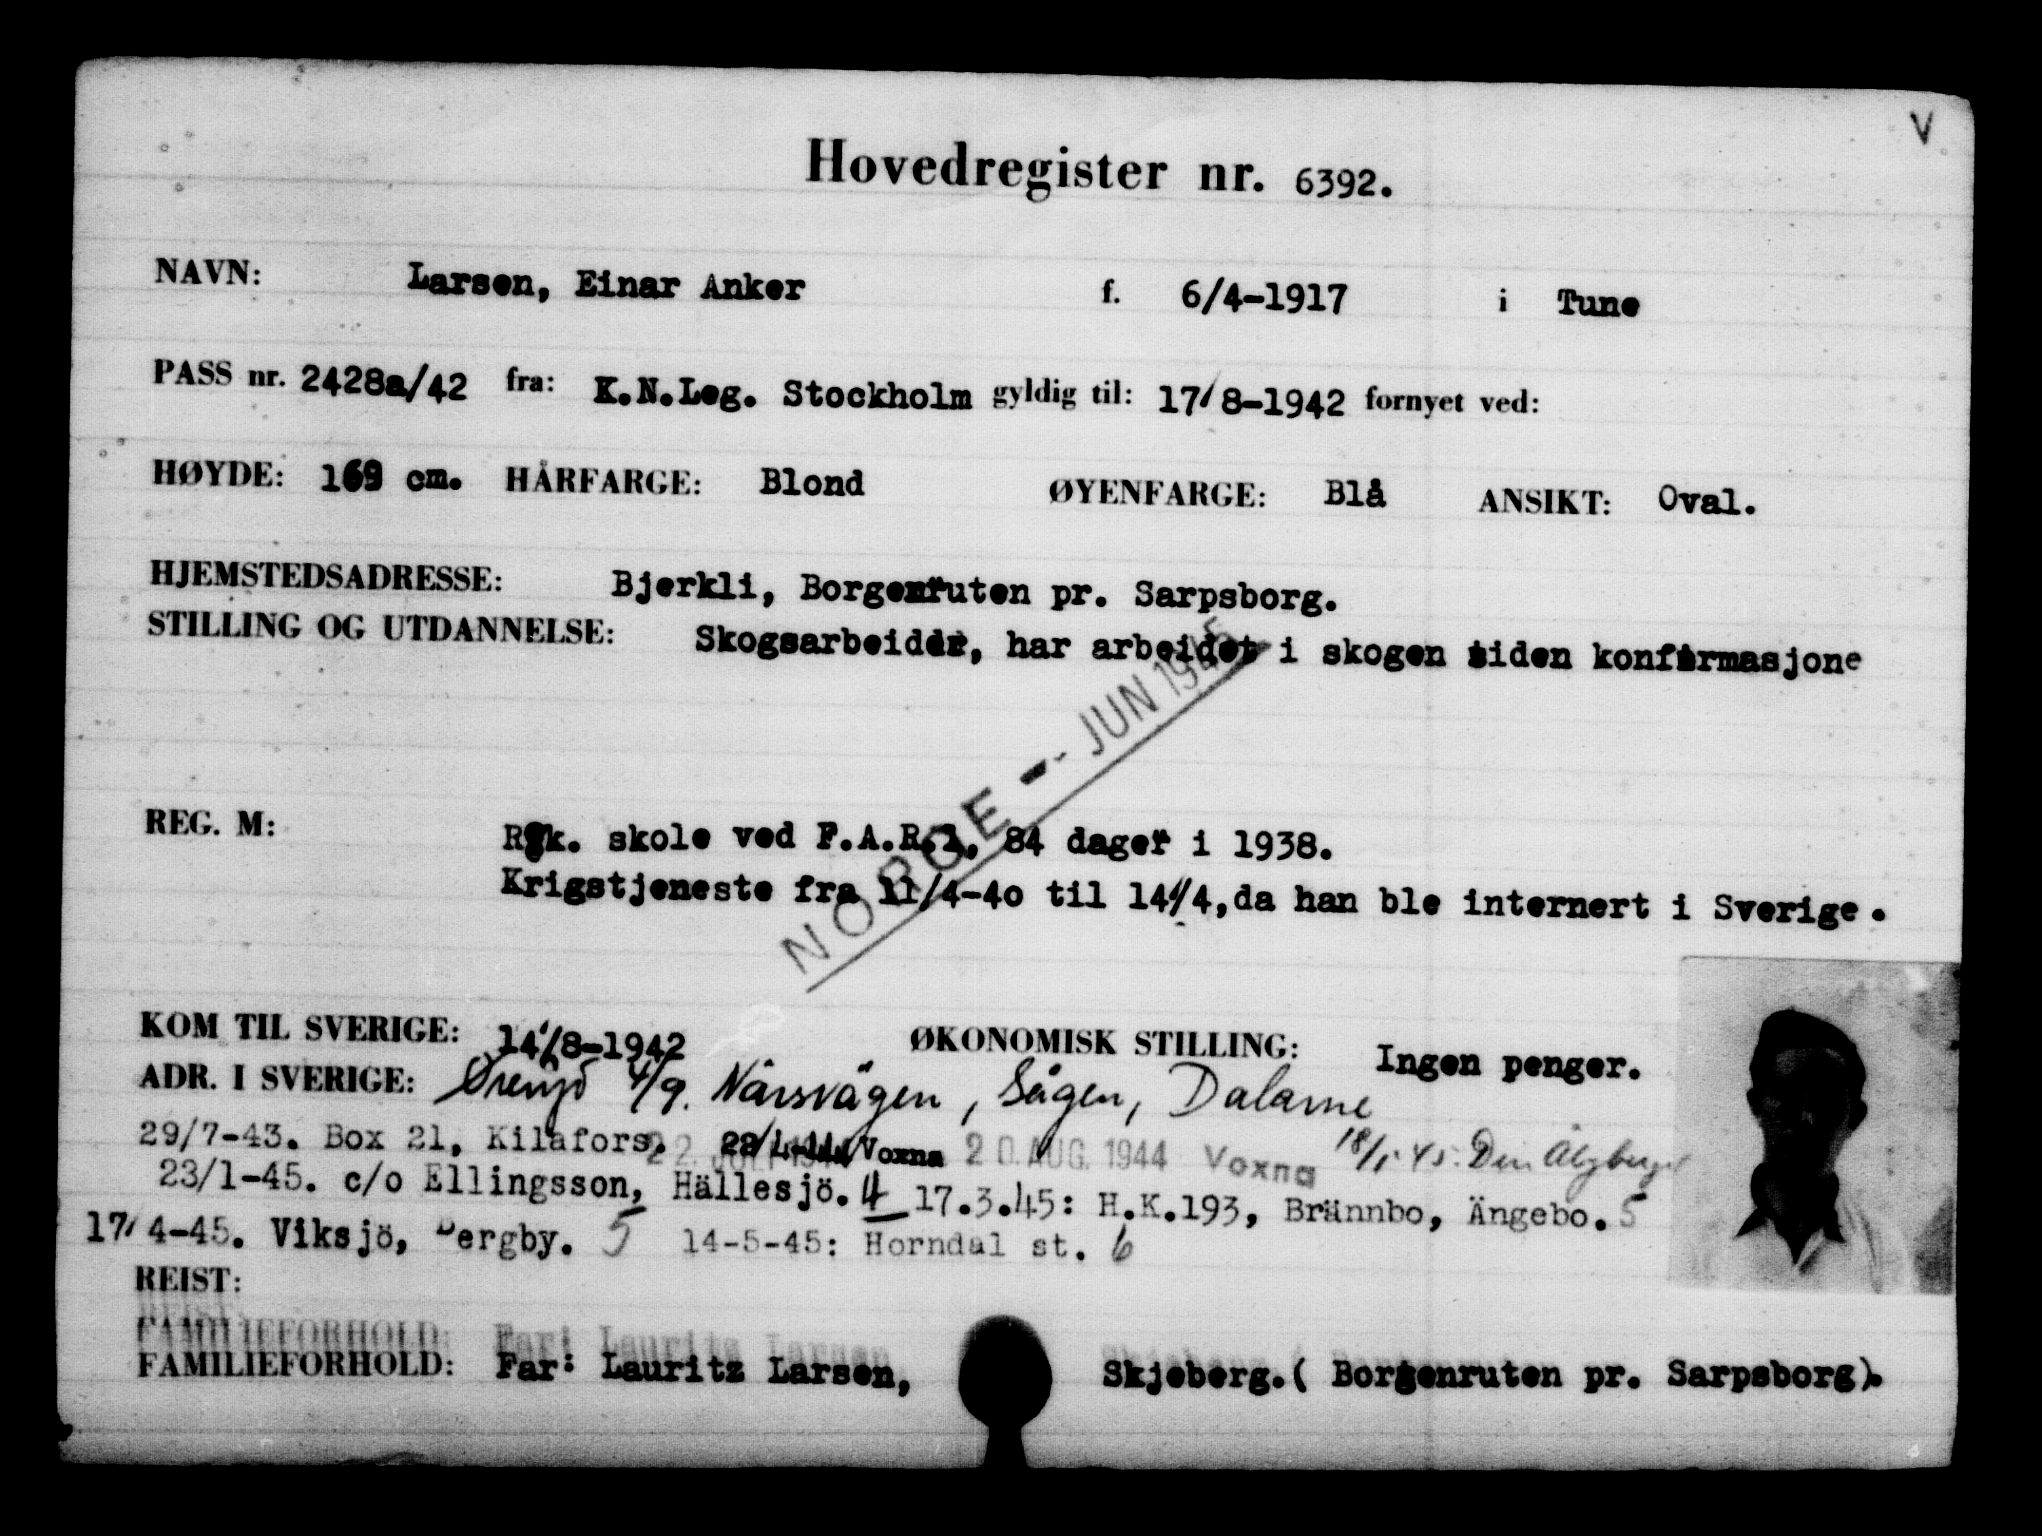 V
Hovedregister nr. 6392.
NAVN: Larsen, Einar Anker f. 6/4-1917 i Tune
PASS nr. 2428a/42 fra: K.N.Leg. Stockholm gyldig til: 17/8-1942 fornyet ved:
HØYDE: 169 cm. HÅRFARGE: Blond ØYENFARGE: Blå ANSIKT: Oval.
HJEMSTEDSADRESSE: Bjerkli, Borgenruten pr. Sarpsborg.
STILLING OG UTDANNELSE: Skogsarbeider, har arbeidet i skogen siden konfirmasjone
NORGE - JUN 1945
REG. M: Rek. skole ved F.A.R.1, 84 dager i 1938.
Krigstjeneste fra 11/4-40 til 14/4, da han ble internert i Sverige.
KOM TIL SVERIGE: 14/8-1942 ØKONOMISK STILLING: Ingen penger.
ADR. I SVERIGE: 4/9. Närsvägen, Sågen, Dalarne
29/7-43. Box 21, Kilafors. 22 JULI 1944 Voxna 20. AUG. 1944 Voxna 18/1-45. Den
23/1-45. c/o Ellingsson, Hällesjö. 4 17.3.45: H.K.193, Brännbo, Ängebo. 5
17/4-45. Viksjö, Bergby. 5 14-5-45: Horndal st. 6
REIST:
FAMILIEFORHOLD: Far: Lauritz Larsen, Skjeberg. ( Borgenruten pr. Sarpsborg).